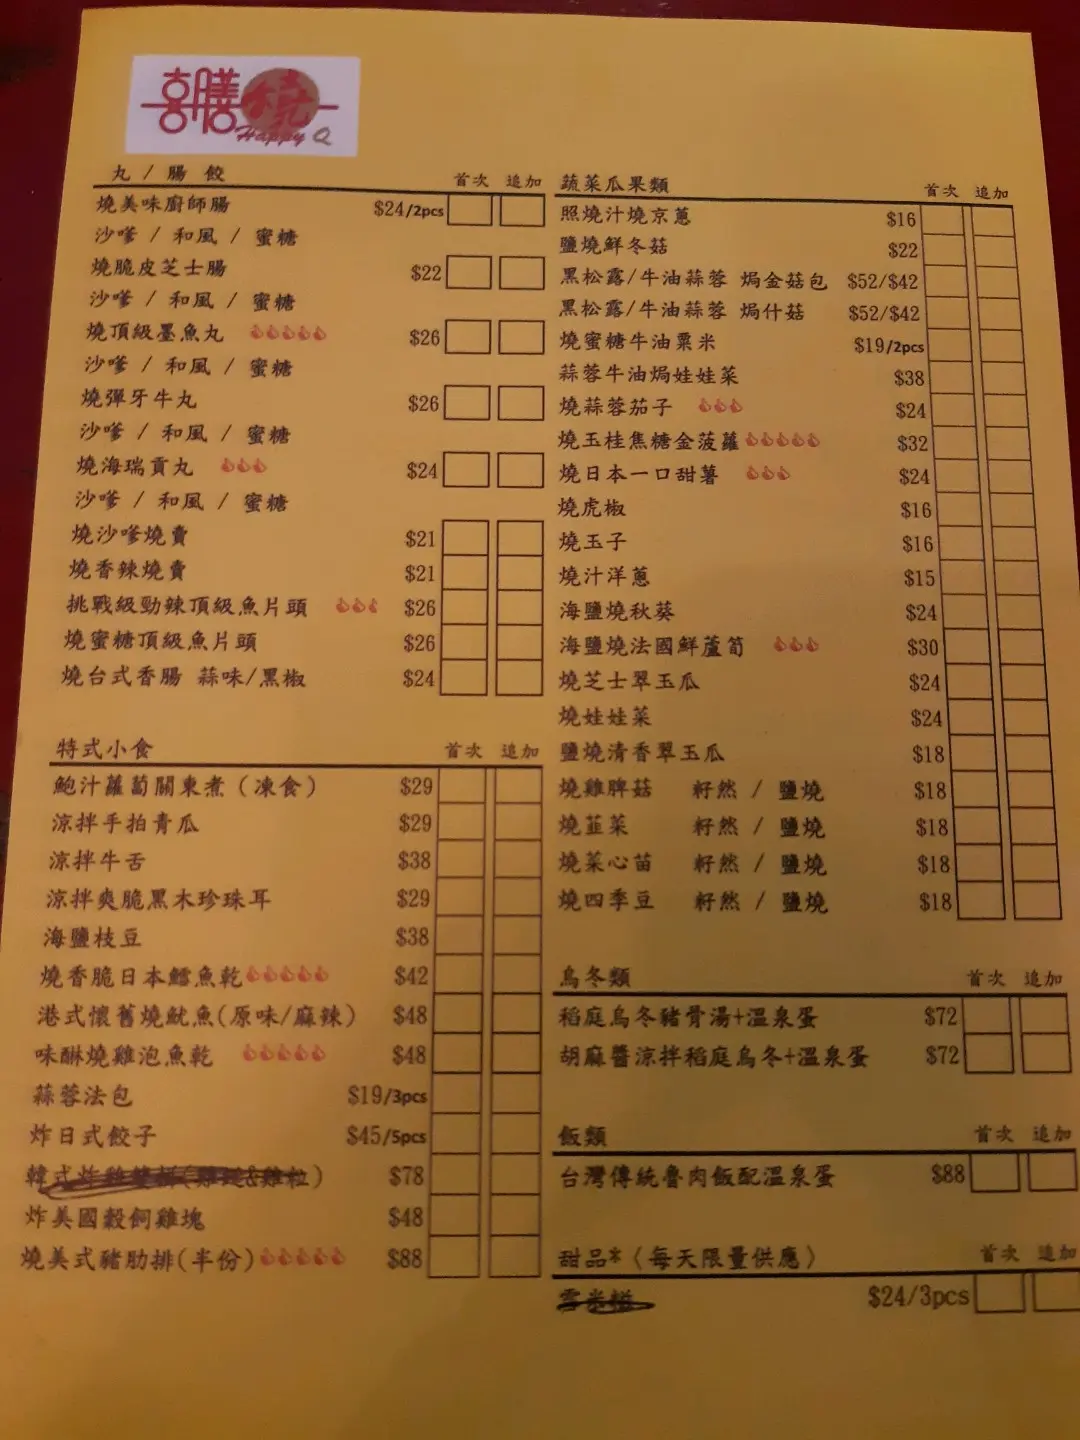 喜膳燒
Happy Q
丸 / 腸 餃 首次 追加
燒美味廚師腸 $24/2pcs
沙嗲 / 和風 / 蜜糖
燒脆皮芝士腸 $22
沙嗲 / 和風 / 蜜糖
燒頂級墨魚丸 $26
沙嗲 / 和風 / 蜜糖
燒彈牙牛丸 $26
沙嗲 / 和風 / 蜜糖
燒海瑞貢丸 $24
沙嗲 / 和風 / 蜜糖
燒沙嗲燒賣 $21
燒香辣燒賣 $21
挑戰級勁辣頂級魚片頭 $26
燒蜜糖頂級魚片頭 $26
燒台式香腸 蒜味/黑椒 $24
特式小食 首次 追加
鮑汁蘿蔔關東煮（凍食） $29
涼拌手拍青瓜 $29
涼拌牛舌 $38
涼拌爽脆黑木珍珠耳 $29
海鹽枝豆 $38
燒香脆日本鱈魚乾 $42
港式懷舊燒魷魚(原味/麻辣) $48
味醂燒雞泡魚乾 $48
蒜蓉法包 $19/3pcs
炸日式餃子 $45/5pcs
韓式炸雞雙拼(雞翼&雞粒) $78
炸美國穀飼雞塊 $48
燒美式豬肋排(半份) $88
蔬菜瓜果類 首次 追加
照燒汁燒京蔥 $16
鹽燒鮮冬菇 $22
黑松露/牛油蒜蓉 焗金菇包 $52/$42
黑松露/牛油蒜蓉 焗什菇 $52/$42
燒蜜糖牛油粟米 $19/2pcs
蒜蓉牛油焗娃娃菜 $38
燒蒜蓉茄子 $24
燒玉桂焦糖金菠蘿 $32
燒日本一口甜薯 $24
燒虎椒 $16
燒玉子 $16
燒汁洋蔥 $15
海鹽燒秋葵 $24
海鹽燒法國鮮蘆筍 $30
燒芝士翠玉瓜 $24
燒娃娃菜 $24
鹽燒清香翠玉瓜 $18
燒雞脾菇 籽然 / 鹽燒 $18
燒韮菜 籽然 / 鹽燒 $18
燒菜心苗 籽然 / 鹽燒 $18
燒四季豆 籽然 / 鹽燒 $18
烏冬類 首次 追加
稻庭烏冬豬骨湯+溫泉蛋 $72
胡麻醬涼拌稻庭烏冬+溫泉蛋 $72
飯類 首次 追加
台灣傳統魯肉飯配溫泉蛋 $88
甜品*（每天限量供應） 首次 追加
雪米糍 $24/3pcs